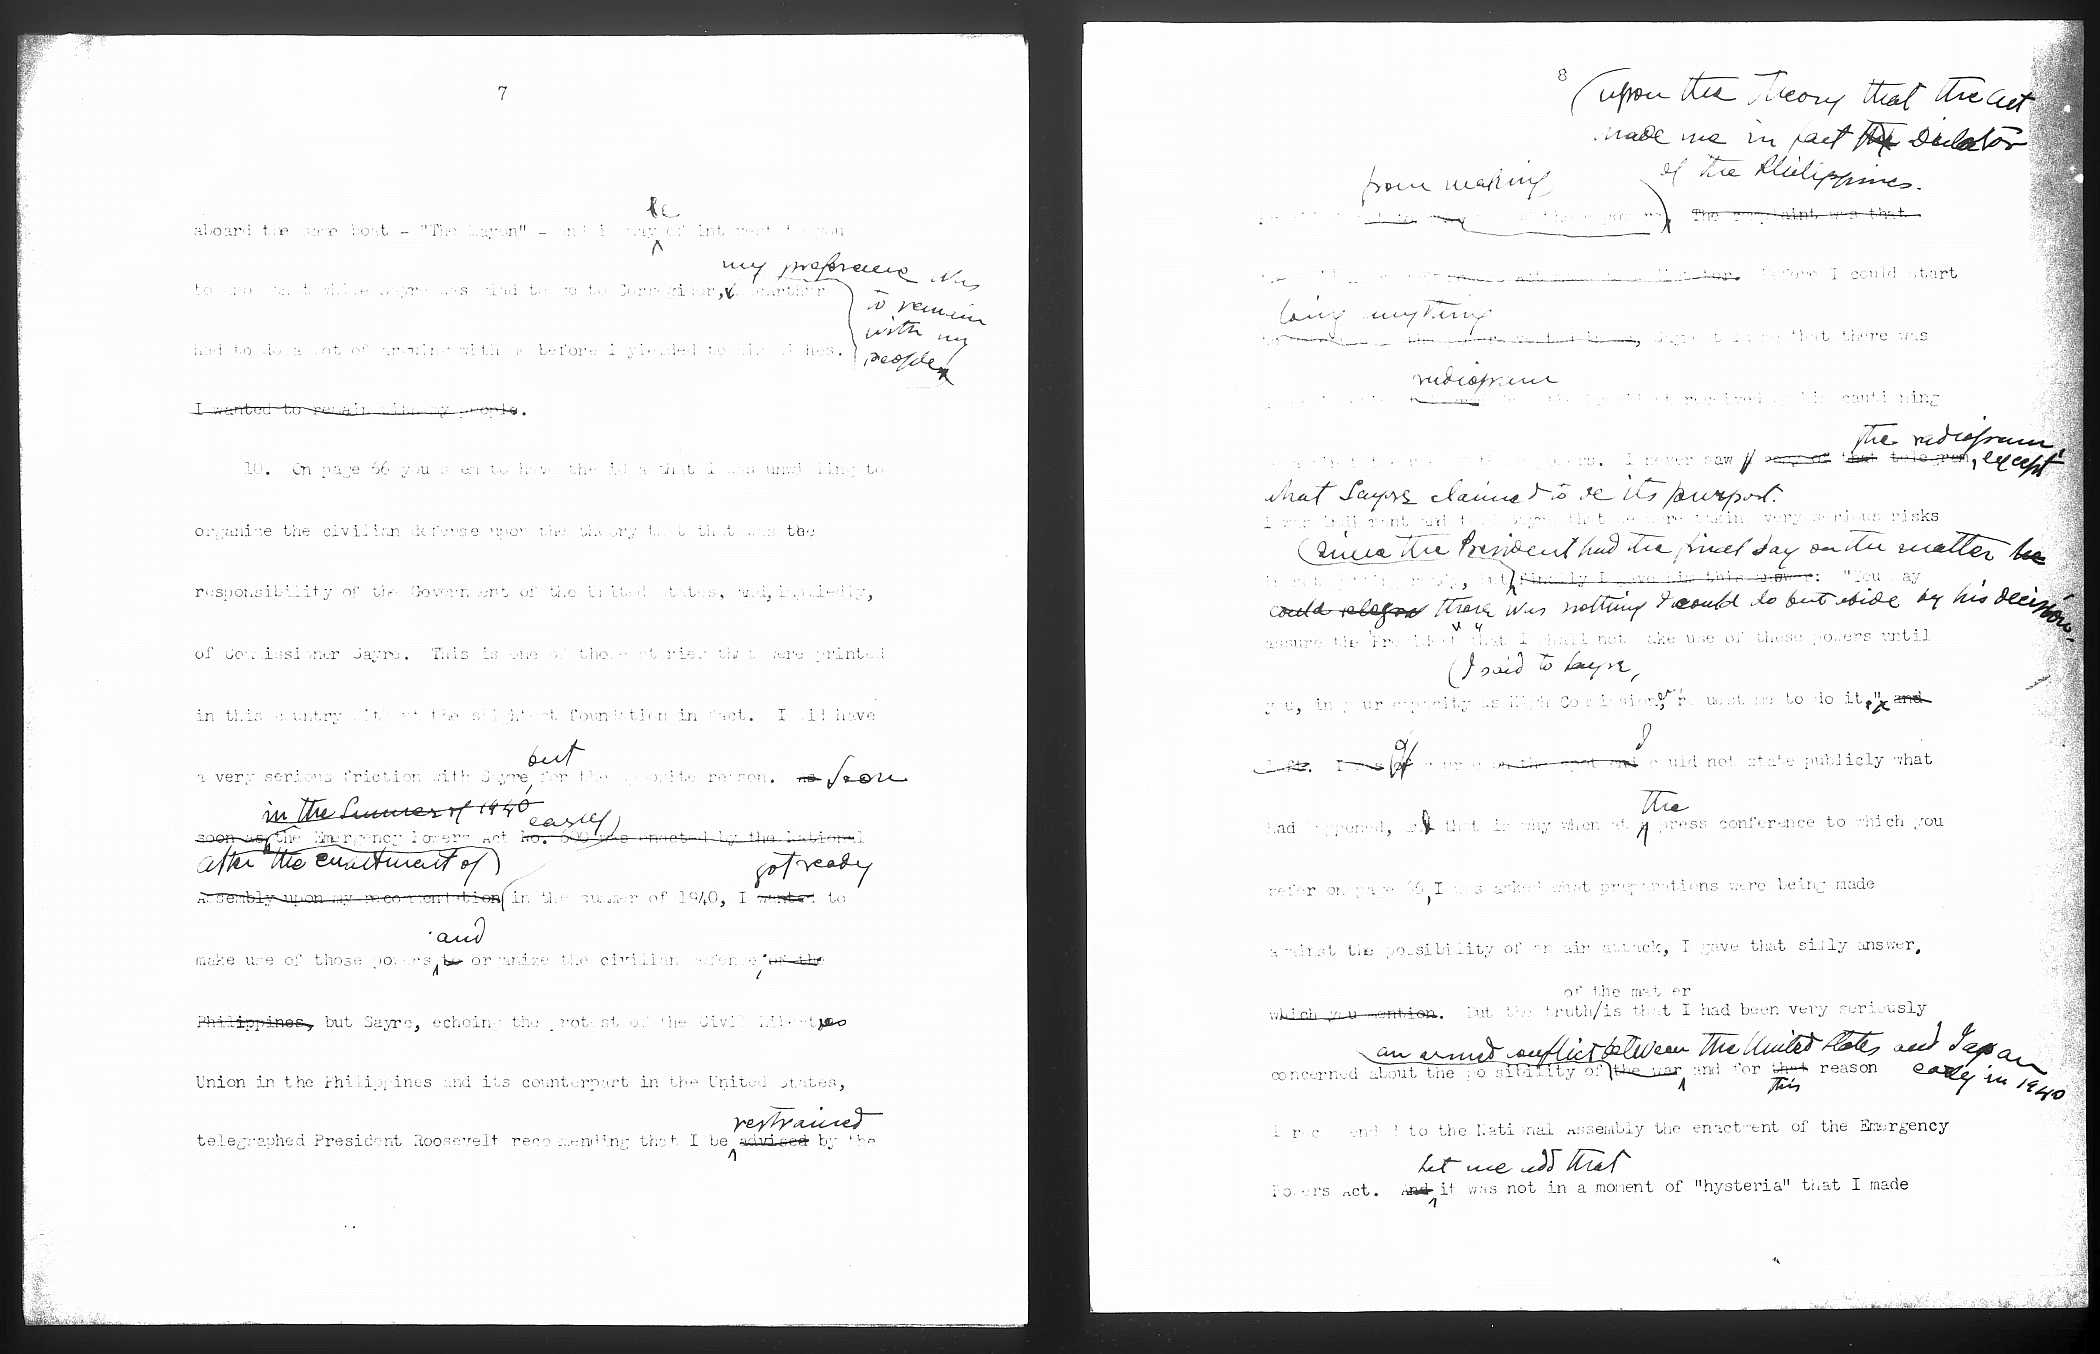 7
be
aboard the same boat - "The Mayon" - and it may of interest to you
my preference was
to know that while Sayre was glad to go to Corregidor, MacArthur
to remain
with my
people
had to do a lot of arguing with me before I yielded to his wishes.
I wanted to remain with my people.
10. On page 66 you seem to have the idea that I was unwilling to
organize the civilian defense upon the theory that that was the
responsibility of the Government of the United States, and, impliedly,
of Commissioner Sayre. This is one of those stories that were printed
in this country without the slightest foundation in fact. I did have
but
a very serious friction with Sayre, for the opposite reason. as Soon
in the Summer of 1940
early
soon as the Emergency Powers Act No. 600 was enacted by the National
after the enactment of
got ready
Assembly upon my recommendation in the summer of 1940, I wanted to
and
make use of those powers, to organize the civilian defense of the
Philippines, but Sayre, echoing the protest of the Civil Liberties
Union in the Philippines and its counterpart in the United States,
restrained
telegraphed President Roosevelt recommending that I be advised by the
8
upon the theory that the Act
made me in fact the Dictator
of the Philippines.
from making
The complaint was that
Before I could start
doing anything
that there was
radiogram
cautioning
the radiogram
I never saw copy of that telegram, except
what Sayre claimed to be its purport.
that we were taking very serious risks
since the President had the final say on the matter he
but finally I gave him this answer: "You may
could there was nothing I could do but abide by his decision.
assure the President that I shall not make use of these powers until
I said to Sayre,
you, in your capacity as High Commissioner, request me to do it," and
I
left. could not state publicly what
the
had happened, and that is why when at press conference to which you
refer on page 66, I was asked what preparations were being made
against the possibility of an air attack, I gave that silly answer,
of the matter
which you mention. But the truth/is that I had been very seriously
an armed conflict between the United States and Japan
concerned about the possibility of the war and for that reason early in 1940
this
I recommended to the National Assembly the enactment of the Emergency
Let me add that
Powers Act. And it was not in a moment of "hysteria" that I made